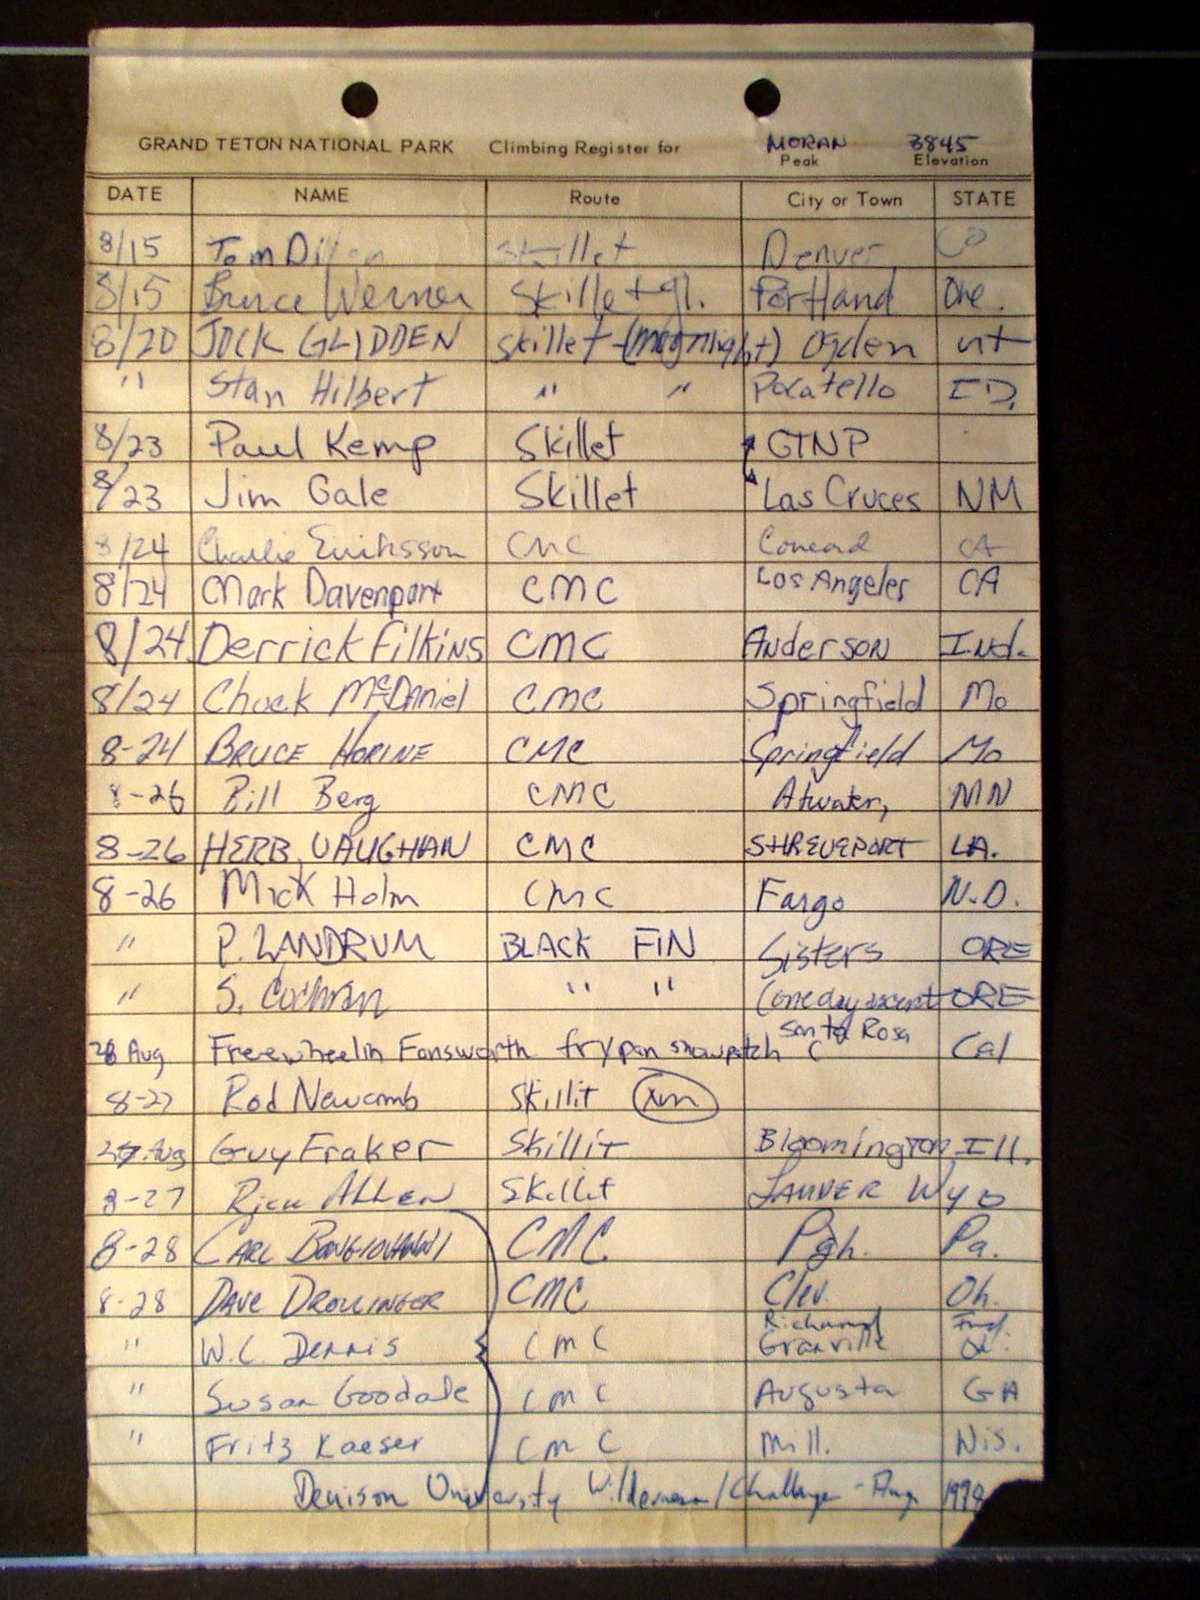 GRAND TETON NATIONAL PARK Climbing Register for MORAN 3845
Peak Elevation
DATE NAME Route City or Town STATE
8/15 Tom Skillet Denver CO
8/15 Bruce Werner Skillet gl. Portland Ore.
8/20 JOCK GLIDDEN Skillet (moonlight) Ogden ut
" Stan Hilbert " " Pocatello ID.
8/23 Paul Kemp Skillet GTNP
8/23 Jim Gale Skillet Las Cruces NM
8/24 Charlie Eriksson CMC Concord CA
8/24 Mark Davenport CMC Los Angeles CA
8/24 Derrick Filkins CMC Anderson Ind.
8/24 Chuck McDaniel CMC Springfield Mo
8-24 BRUCE HORINE CMC Springfield Mo
8-26 Bill Berg CMC Atwater, MN
8-26 HERB VAUGHAN CMC SHREVEPORT LA.
8-26 Mick Holm CMC Fargo N.D.
" P. LANDRUM BLACK FIN Sisters ORE
" S. Cochran " " (one day ascent ORE
Santa Rosa
26 Aug Freewheelin Fonsworth frypan snowpatch Cal
8-27 Rod Newcomb Skillit
27 Aug Guy Fraker Skillit Bloomington Ill.
8-27 Rick ALLEN Skillet LANDER Wyo
8-28 CARL BONGIOVANNI CMC Pgh. Pa.
8-28 DAVE DROLLINGER CMC Clev. Oh.
Richmond Ind.
" W.C. Dennis CMC Granville
" Susan Goodale CMC Augusta GA
" Fritz Kaeser CMC Mill. Wis.
Denison University Wilderness/Challenge - Aug 1978